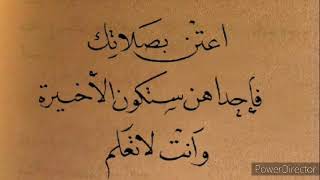 اعتن بصلاتك
فإحداهن ستكون الأخيرة
وأنت لا تعلم
PowerDirector